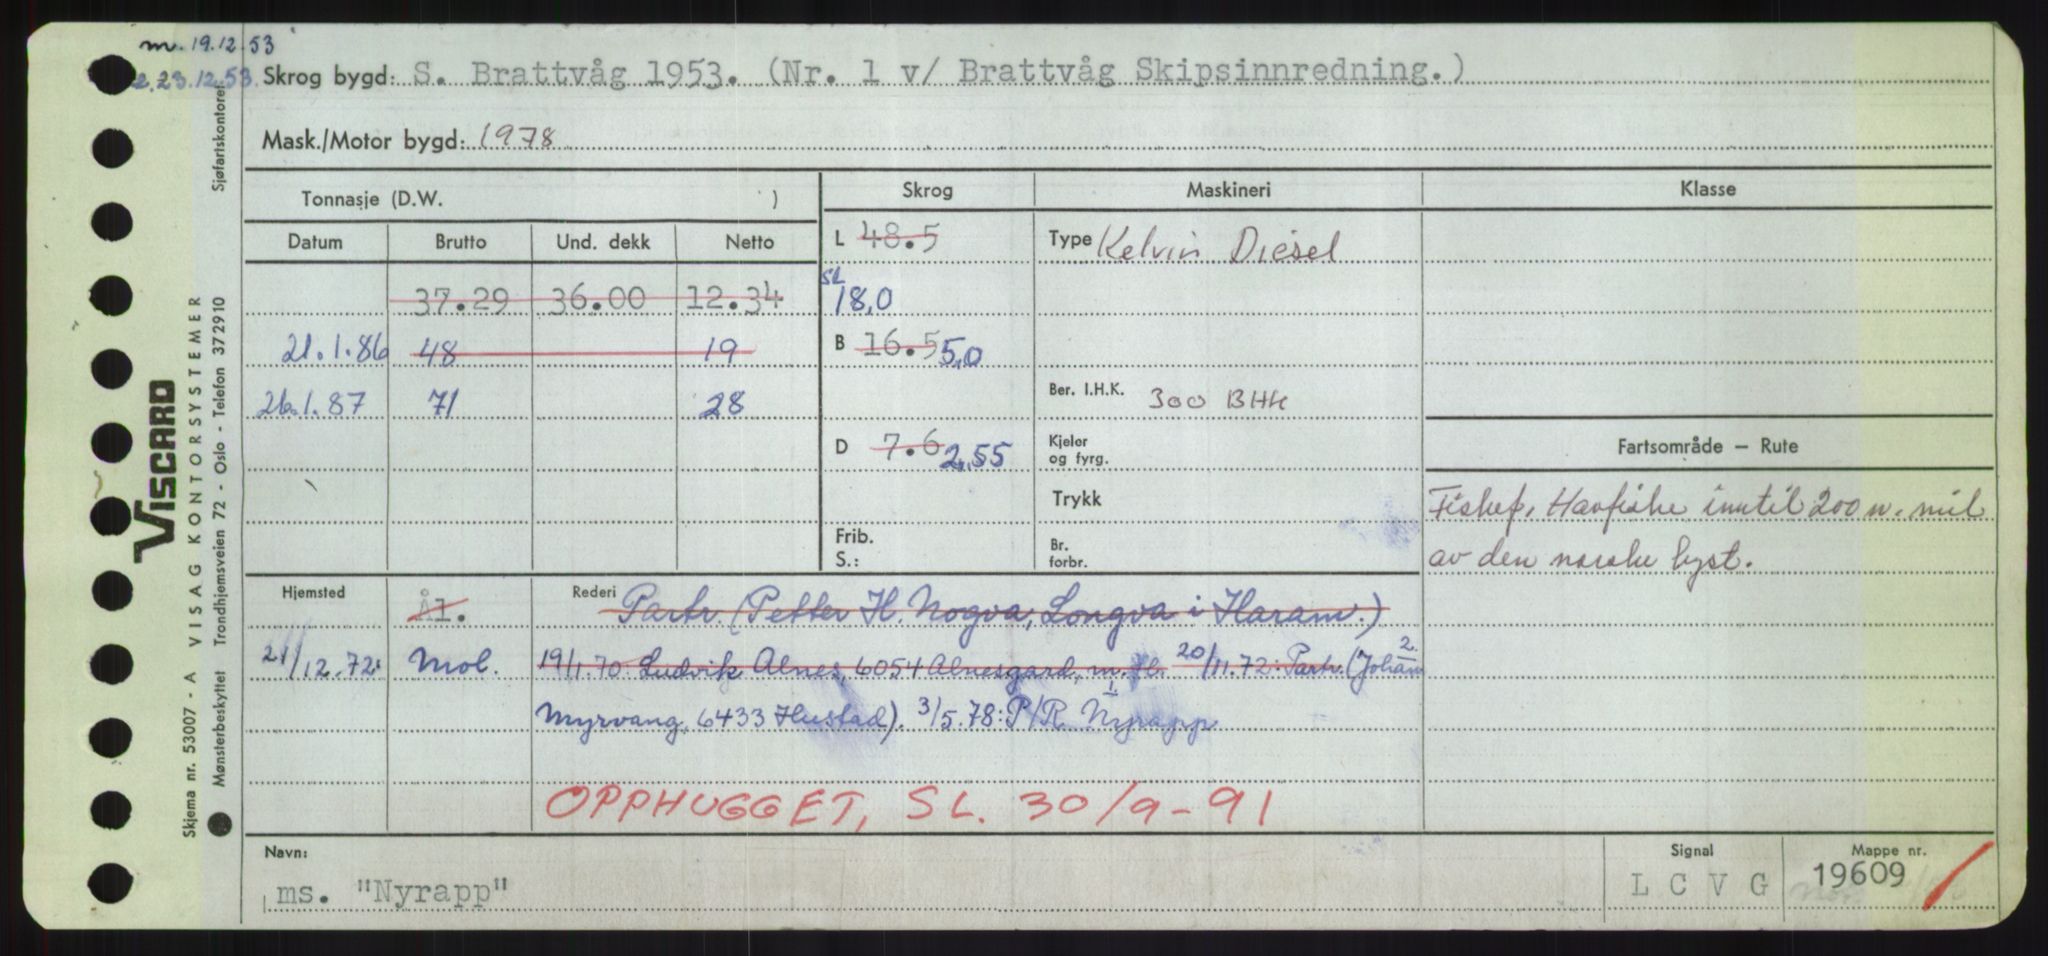 m. 19.12.53
23.12.53.
Skrog bygd: S. Brattvåg 1953. (Nr. 1 v/ Brattvåg Skipsinnredning.)
Mask./Motor bygd: 1978
Tonnasje (D.W. )
Skrog
Maskineri
Klasse
Datum Brutto Und. dekk Netto
L 48.5
Type Kelvin Diesel
37.29 36.00 12.34
SL 18,0
21.1.86 48 19
B 16.5 5,0
26.1.87 71 28
Ber. I.H.K. 300 BHK
D 7.6 2,55
Kjeler
og fyrg.
Fartsområde — Rute
Trykk
Fiskef. Havfiske inntil 200 n. mil
av den norske kyst.
Frib.
S.:
Br.
forbr.
Hjemsted Ål. Rederi Partr. (Petter H. Nogva, Longva i Haram.)
21/12.72: Mol. 19/1.70 Ludvik Alnes, 6054 Alnesgard, m. fl. 20/11.72: Partr. (Johan 2.
Myrvang, 6433 Hustad). 3/5.78: P/R 1. Nyrapp
OPPHUGGET, SL. 30/9-91
Navn:
ms. "Nyrapp"
Signal
L C V G
Mappe nr.
19609
VISCARD
Skjema nr. 53007 - A VISAG KONTORSYSTEMER
Mønsterbeskyttet Trondhjemsveien 72 - Oslo - Telefon 372910 Sjøfartskontoret